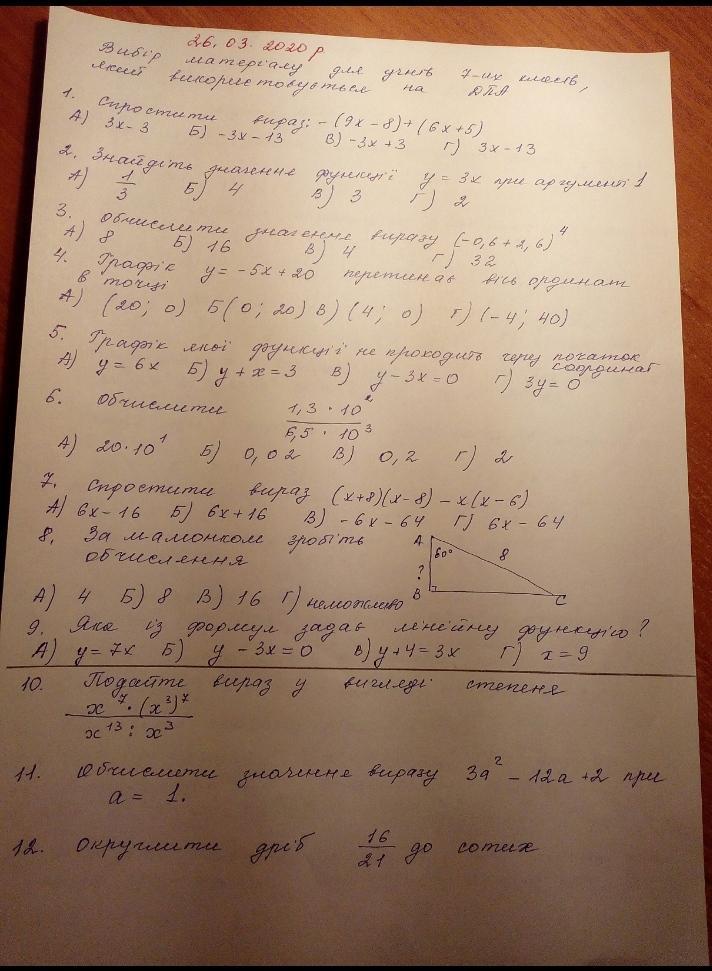 26.03.2020 р
Вибір матеріалу для учнів 7-их класів,
який використовується на ДПА
1. Спростити вираз: -(9x-8)+(6x+5)
А) 3x-3 Б) -3x-13 В) -3x+3 Г) 3x-13
2. Знайдіть значення функції y = 3x при аргументі 1
А) 1/3 Б) 4 В) 3 Г) 2
3. Обчислити значення виразу (-0,6+2,6)⁴
А) 8 Б) 16 В) 4 Г) 32
4. Графік y = -5x+20 перетинає вісь ординат
в точці
А) (20; 0) Б (0; 20) В) (4; 0) Г) (-4; 40)
5. Графік якої функції не проходить через початок
координат
А) y = 6x Б) y + x = 3 В) y - 3x = 0 Г) 3y = 0
6. Обчислити 1,3 · 10² / 6,5 · 10³
А) 20·10¹ Б) 0,02 В) 0,2 Г) 2
7. Спростити вираз (x+8)(x-8) - x(x-6)
А) 6x-16 Б) 6x+16 В) -6x-64 Г) 6x-64
8. За малюнком зробіть
обчислення
A 60° 8 ? B C
А) 4 Б) 8 В) 16 Г) неможливо
9. Яка із формул задає лінійну функцію?
А) y = 7x Б) y - 3x = 0 В) y+4 = 3x Г) x = 9
10. Подайте вираз у вигляді степеня
x⁷ · (x³)⁷
x¹³ : x³
11. Обчислити значення виразу 3a² - 12a + 2 при
a = 1.
12. Округлити дріб 16/21 до сотих